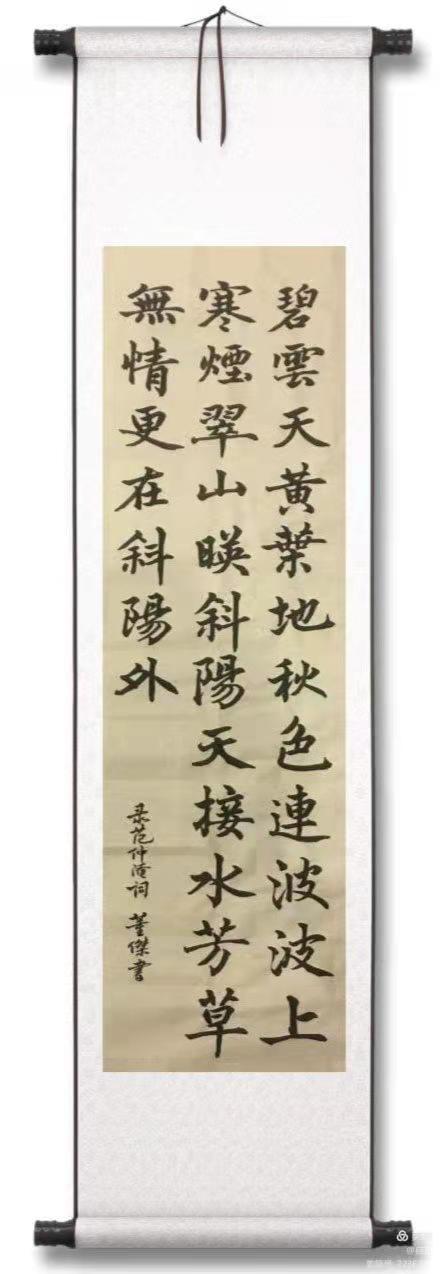 碧雲天黃葉地秋色連波波上
寒煙翠山暎斜陽天接水芳草
無情更在斜陽外
录范仲淹词 董傑書